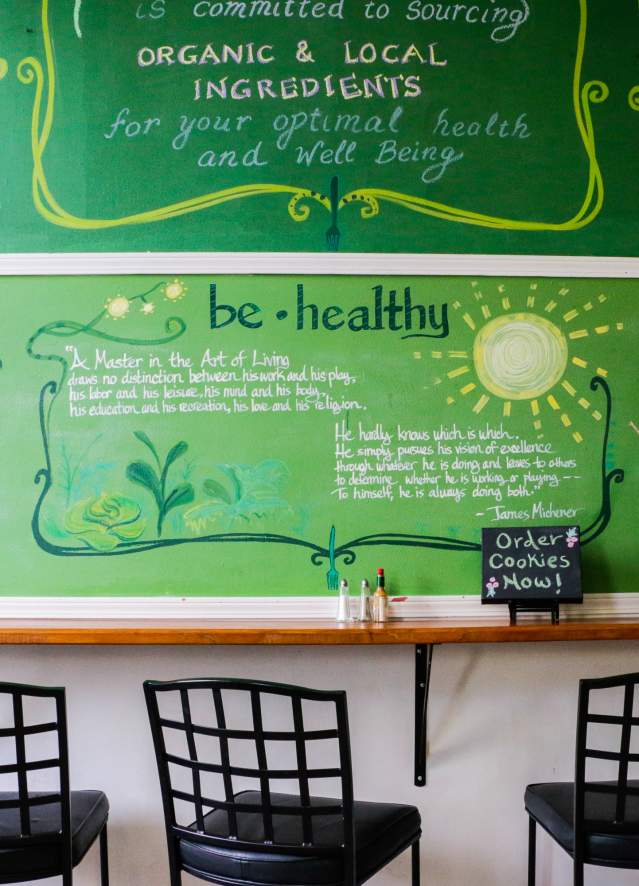 is committed to sourcing
ORGANIC & LOCAL
INGREDIENTS
for your optimal health
and Well Being
be • healthy
"A Master in the Art of Living
draws no distinction between his work and his play,
his labor and his leisure, his mind and his body,
his education and his recreation, his love and his religion.
He hardly knows which is which.
He simply pursues his vision of excellence
through whatever he is doing and leaves to others
to determine whether he is working or playing --
To himself, he is always doing both."
- James Michener
Order
Cookies
Now!